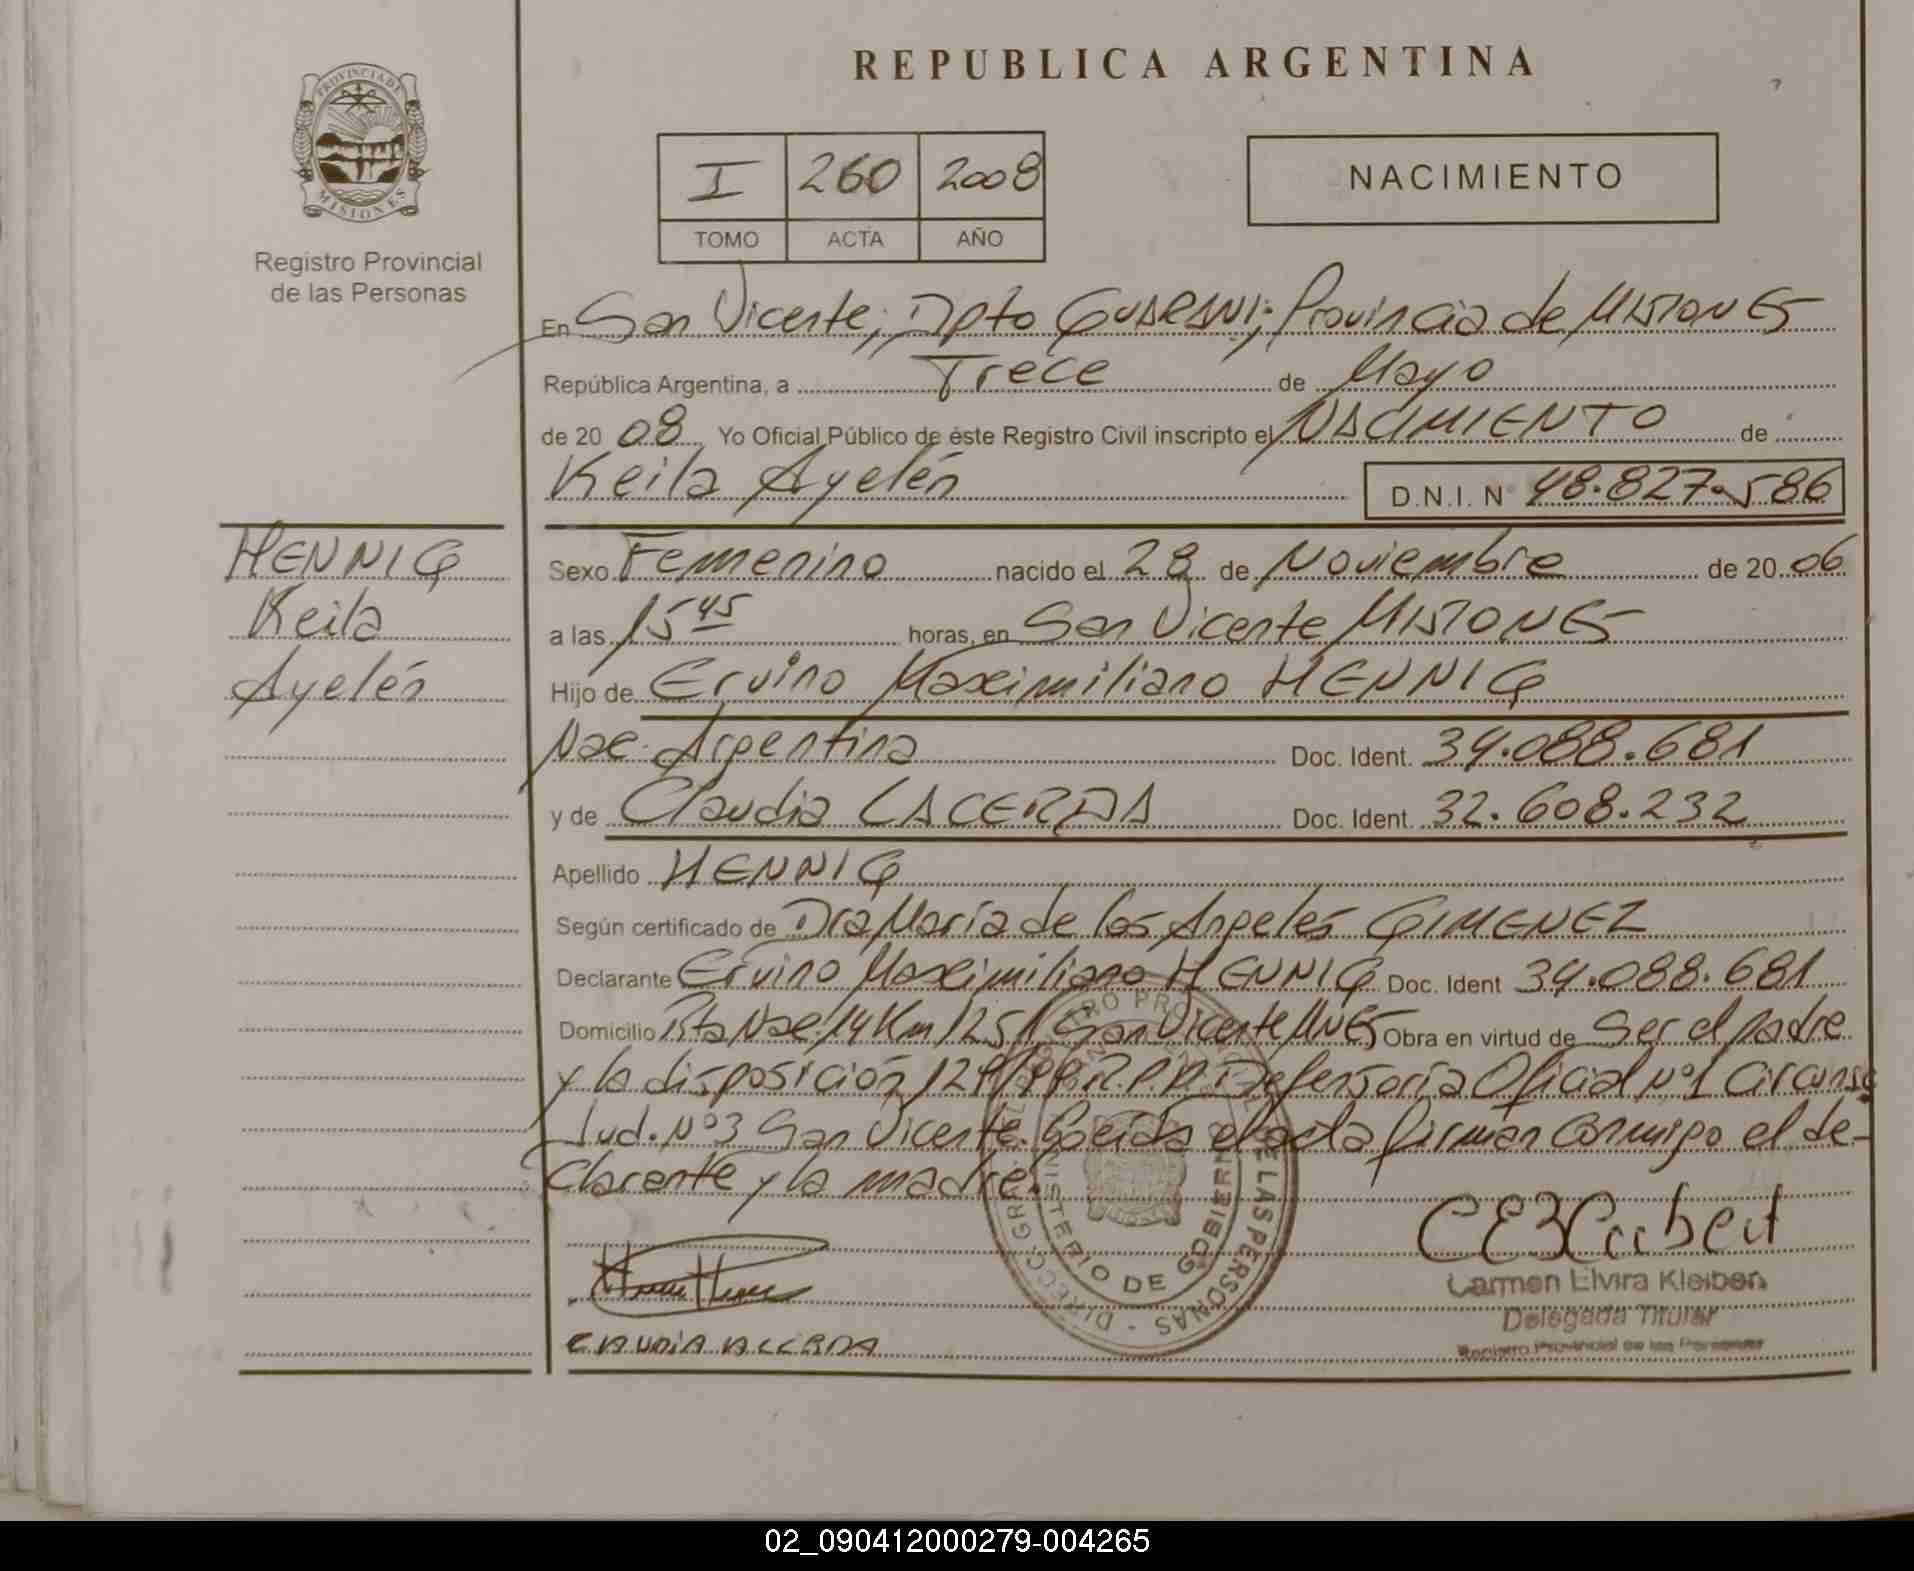 PROVINCIA DE
MISIONES
Registro Provincial
de las Personas
REPUBLICA ARGENTINA
I 260 2008
TOMO ACTA AÑO
NACIMIENTO
En San Vicente; Dpto GUARANI; Provincia de MISIONES
República Argentina, a Trece de Mayo
de 20 08 Yo Oficial Público de éste Registro Civil inscripto el NACIMIENTO de
Keila Ayelén D.N.I. Nº 48.827.586
HENNIG
Keila
Ayelén
Sexo Femenino nacido el 28 de Noviembre de 20 06
a las 15 45 horas, en San Vicente MISIONES
Hijo de Ervino Maximiliano HENNIG
Nac. Argentina Doc. Ident. 34.088.681
y de Claudia LACERDA Doc. Ident. 32.608.232
Apellido HENNIG
Según certificado de Dra María de los Angeles GIMENEZ
Declarante Ervino Maximiliano HENNIG Doc. Ident 34.088.681
Domicilio Rta Nac. 14 Km 1251 San Vicente MNES Obra en virtud de Ser el padre
y la disposición Defensoría Oficial Nº1 Circunsc
Jud. Nº3 San Vicente. el acta firman conmigo el de-
clarante y la madre.
MINISTERIO DE GOBIERNO
DE LAS PERSONAS
Carmen Elvira Kleiben
Delegada Titular
Registro Provincial de las Personas
02_090412000279-004265